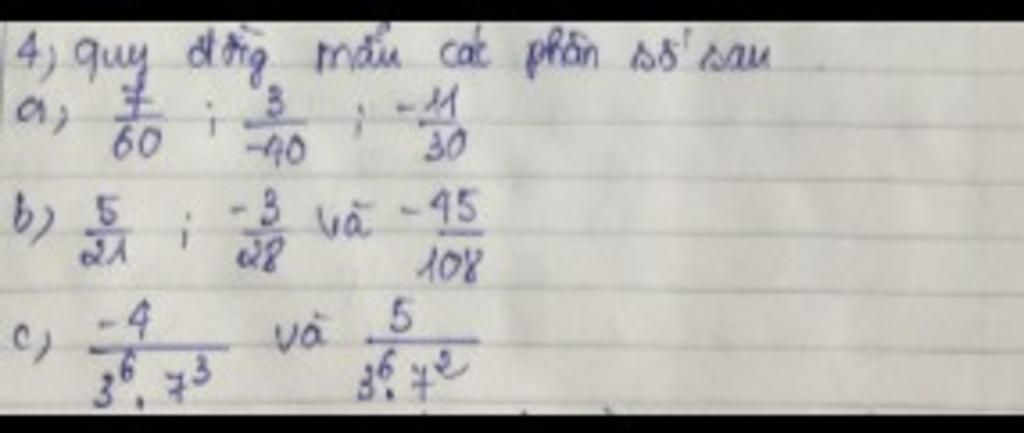 4) quy đồng mẫu các phân số sau
a) 7/60 ; 3/-40 ; -11/30
b) 5/21 ; -3/28 và -45/108
c) -4/3⁶.7³ và 5/3⁶.7²